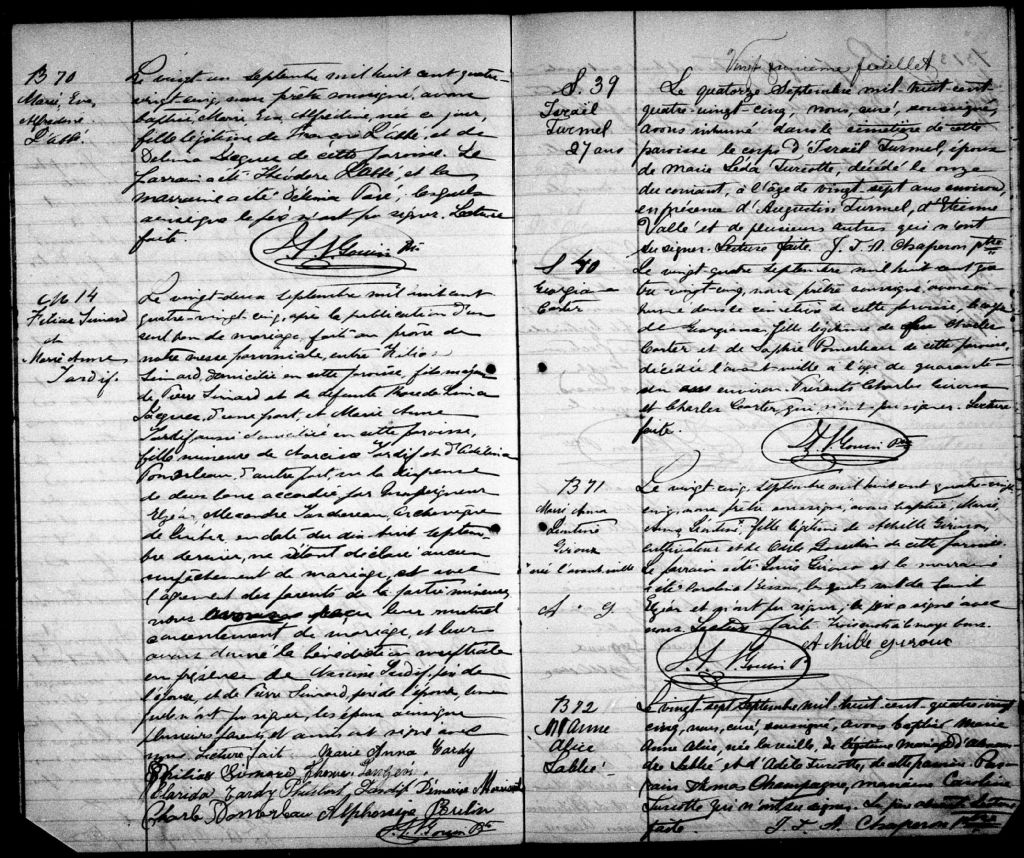 B 70
Marie, Eva,
Alfédine
Labbé.
Le vingt-un septembre mil huit cent quatre-
vingt-cinq, nous prêtre soussigné, avons
baptisé, Marie Eva Alfédine, née ce jour,
fille légitime de François Labbé, et de
Délima Jacques de cette paroisse. Le
parrain a été Théodore Labbé, et la
marraine a été Délima Paré, lesquels
ainsi que le père n'ont pu signer. Lecture
faite.
Gouin Ptre
M 14
Simard
et
Marie Anne
Tardif.
Le vingt-deux septembre mil huit cent
quatre-vingt-cinq, après la publication d'un
seul ban de mariage, fait au prône de
notre messe paroissiale, entre
Simard, domicilié en cette paroisse, fils majeur
de Pierre Simard et de défunte
Jacques, d'une part, et Marie Anne
Tardif aussi domiciliée en cette paroisse,
fille mineure de Narcisse Tardif et d'Adélina
Pomerleau, d'autre part, vu la dispense
de deux bans accordée par Monseigneur
Elzéar, Alexandre Taschereau, Archevêque
de Québec, en date du dix-huit septem-
bre dernier, ne s'étant déclaré aucun
empêchement de mariage, et avec
l'agrément des parents de la partie mineure,
nous avons reçu leur mutuel
consentement de mariage, et leur
avons donné la bénédiction nuptiale
en présence de Narcisse Tardif, père de
l'épouse, et de Pierre Simard, père de l'époux,
n'ont pu signer, les époux ainsi que
plusieurs parents, et amis ont signé avec
nous. Lecture fait Marie Anna Tardy
Philias Simard Thomas
Clarida Tardy Tardif Démerise
Charle Pomerleau Alphonse
Gouin Ptre
Vingt feuillet
S. 39
Israël
Turmel
27 ans
Le quatorze Septembre mil huit cent
quatre-vingt-cinq, nous, curé, soussigné,
avons inhumé dans le cimetière de cette
paroisse le corps d'Israël Turmel, époux
de Marie Léda Turcotte, décédé le onze
du courant, à l'âge de vingt-sept ans environ,
en présence d'Augustin Turmel, d'Etienne
Vallé et de plusieurs autres qui n'ont
su signer. Lecture faite. J. T. A. Chaperon ptre
S 40
Georgiana
Carter
Le vingt-quatre septembre mil huit cent qua-
tre vingt-cinq, nous prêtre soussigné avons in-
humé dans le cimetière de cette paroisse, le corps
de Georgiana, fille légitime de Charles
Carter et de Sophie Pomerleau de cette paroisse,
décédée l'avant-veille à l'âge de quarante-
ans environ. Présents Charles Giroux
et Charles Carter, qui n'ont pu signer. Lecture
faite.
Gouin Ptre
B 71
Marie Anna
Léontine
Giroux
née l'avant-veille
A. 9
Le vingt-cinq septembre mil huit cent quatre-vingt
cinq, nous prêtre soussigné, avons baptisé, Marie,
Anna, Léontine, fille légitime de Achille Giroux,
cultivateur et de de cette paroisse.
Le parrain a été Louis Giroux et la marraine
a été Bisson, lesquels sont de Saint
Elzéar et n'ont pu signer; le père a signé avec
nous. Lecture faite.
Achille giroux
Gouin P
B 72
M Anne
Alice
Labbé
Le vingt-sept septembre mil huit cent quatre-vingt
cinq, nous, curé, soussigné, avons baptisé Marie
Anne Alice, née la veille, du légitime mariage
Labbé et d'Odile Turcotte, de cette paroisse. Par-
rain Champagne, marraine Caroline
Turcotte qui n'ont su signer. Le père absent. Lecture
faite. J. T. A. Chaperon ptre